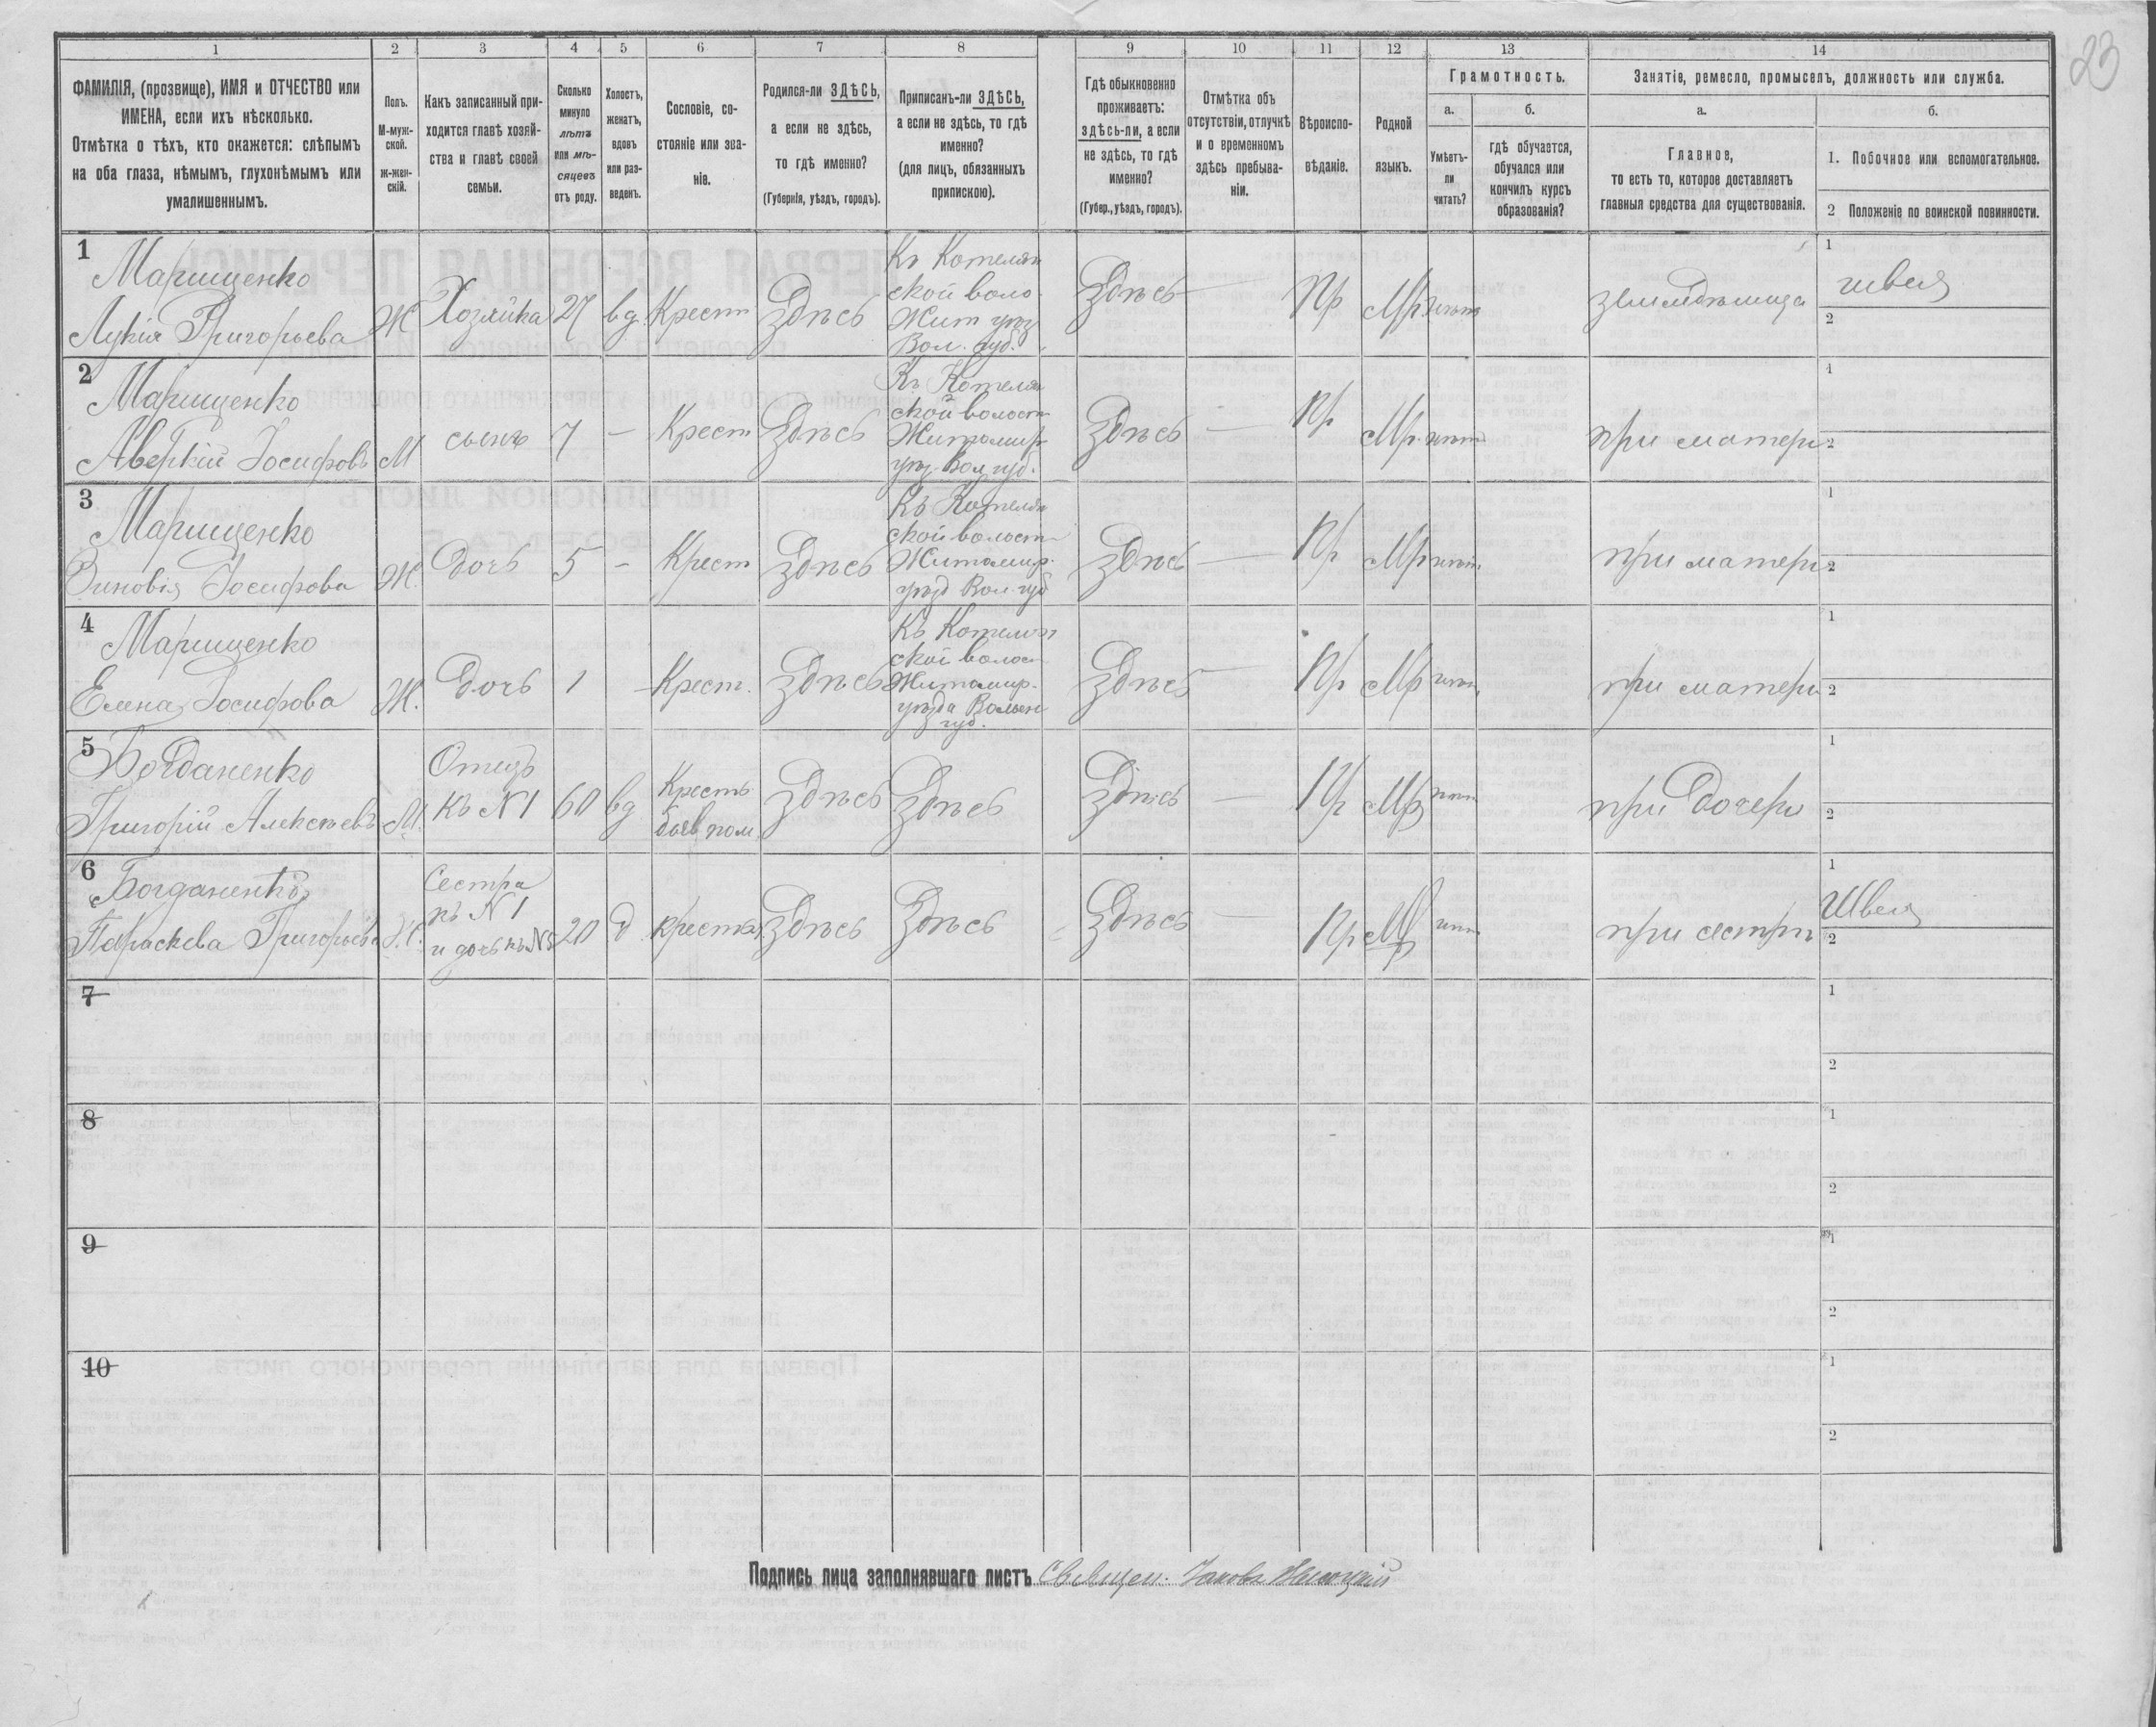 23
1 2 3 4 5 6 7 8 9 10 11 12 13 14
ФАМИЛІЯ, (прозвище), ИМЯ и ОТЧЕСТВО или
ИМЕНА, если ихъ нѣсколько.
Отмѣтка о тѣхъ, кто окажется: слѣпымъ
на оба глаза, нѣмымъ, глухонѣмымъ или
умалишеннымъ.
Полъ.
М-муж-
ской.
ж-жен-
скій.
Какъ записанный при-
ходится главѣ хозяй-
ства и главѣ своей
семьи.
Сколько
минуло
лѣтъ
или мѣ-
сяцевъ
отъ роду.
Холостъ,
женатъ,
вдовъ
или раз-
веденъ.
Сословіе, со-
стояніе или зва-
ніе.
Родился-ли ЗДѢСЬ,
а если не здѣсь,
то гдѣ именно?
(Губернія, уѣздъ, городъ).
Приписанъ-ли ЗДѢСЬ,
а если не здѣсь, то гдѣ
именно?
(для лицъ, обязанныхъ
припискою).
Гдѣ обыкновенно
проживаетъ:
здѣсь-ли, а если
не здѣсь, то гдѣ
именно?
(Губер., уѣздъ, городъ).
Отмѣтка объ
отсутствіи, отлучкѣ
и о временномъ
здѣсь пребыва-
ніи.
Вѣроиспо-
вѣданіе.
Родной
языкъ.
Грамотность.
а.
Умѣетъ-
ли
читать?
б.
гдѣ обучается,
обучался или
кончилъ курсъ
образованія?
Занятіе, ремесло, промыселъ, должность или служба.
а.
Главное,
то есть то, которое доставляетъ
главныя средства для существованія.
б.
1. Побочное или вспомогательное.
2 Положеніе по воинской повинности.
1
Марищенко
Лукія Григорьева
Ж
Хозяйка
27
вд
Крест
Здѣсь
Къ Котелян
ской воло
Жит уѣз
Вол. губ.
Здѣсь —
Пр
Мр
нѣт
1 швея
2
2
Марищенко
Аверкій Іосифовъ
М
сынъ
7
—
Крест
Здѣсь
Къ Котелян
ской волост
Житомир
уѣз Вол губ.
Здѣсь —
Пр
Мр
нѣт
при матери
1
2
3
Марищенко
Зиновія Іосифова
Ж.
Дочь
5
—
Крест
Здѣсь
Къ Котелян
ской волост
Житомир.
уѣзд Вол губ
Здѣсь —
Пр
Мр
нѣт
при матери
1
2
4
Марищенко
Елена Іосифова
Ж.
Дочь
1
—
Крест.
Здѣсь
Къ Котелян
ской волос
Житомир.
уѣзда Волын
губ.
Здѣсь —
Пр
Мр
нѣт
при матери
1
2
5
Богданенко
Григорій Алексѣевъ
М.
Отецъ
къ №1
60
вд
Крестъ
Здѣсь
Здѣсь
Здѣсь —
Пр
Мр
нѣт
при Дочери
1
2
6
Богданенко
Параскева Григорьева
Ж.
Сестра
къ №1
и дочь къ №5
20
Д
крестьян
Здѣсь
Здѣсь
Здѣсь —
Пр
Мр
нѣт
при сестрѣ
1 Швея
2
7
1
2
8
1
2
9
1
2
10
1
2
Подпись лица заполнявшаго листъ Священ. Іаковъ